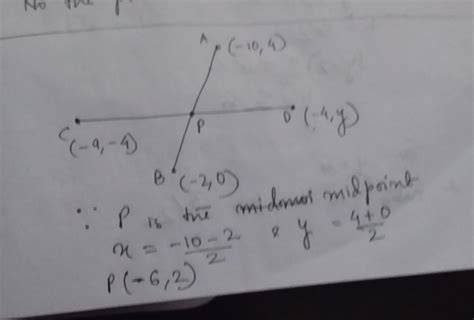 No the
A (-10,4)
C P D (-4,y)
(-9,-4)
B (-2,0)
∵ P is the midpoint
x = -10-2/2 & y = 4+0/2
P(-6,2)